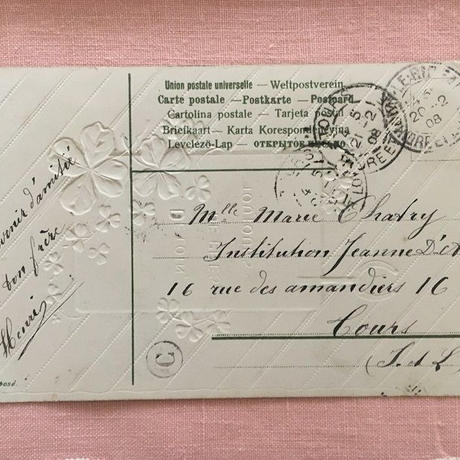 Union postale universelle – Weltpostverein
Carte postale – Postkarte – Postcard
Cartolina postale – Tarjeta postal
Briefkaart – Karta Korespondencyjna
Levelező-Lap – ОТКРЫТОЕ ПИСЬМО
20-2
08
21
08
d'amitié
ton frère
Henri
Mlle Marie Chatry
Institution Jeanne D'A
16 rue des amandiers 16
Tours
(I. d L
C